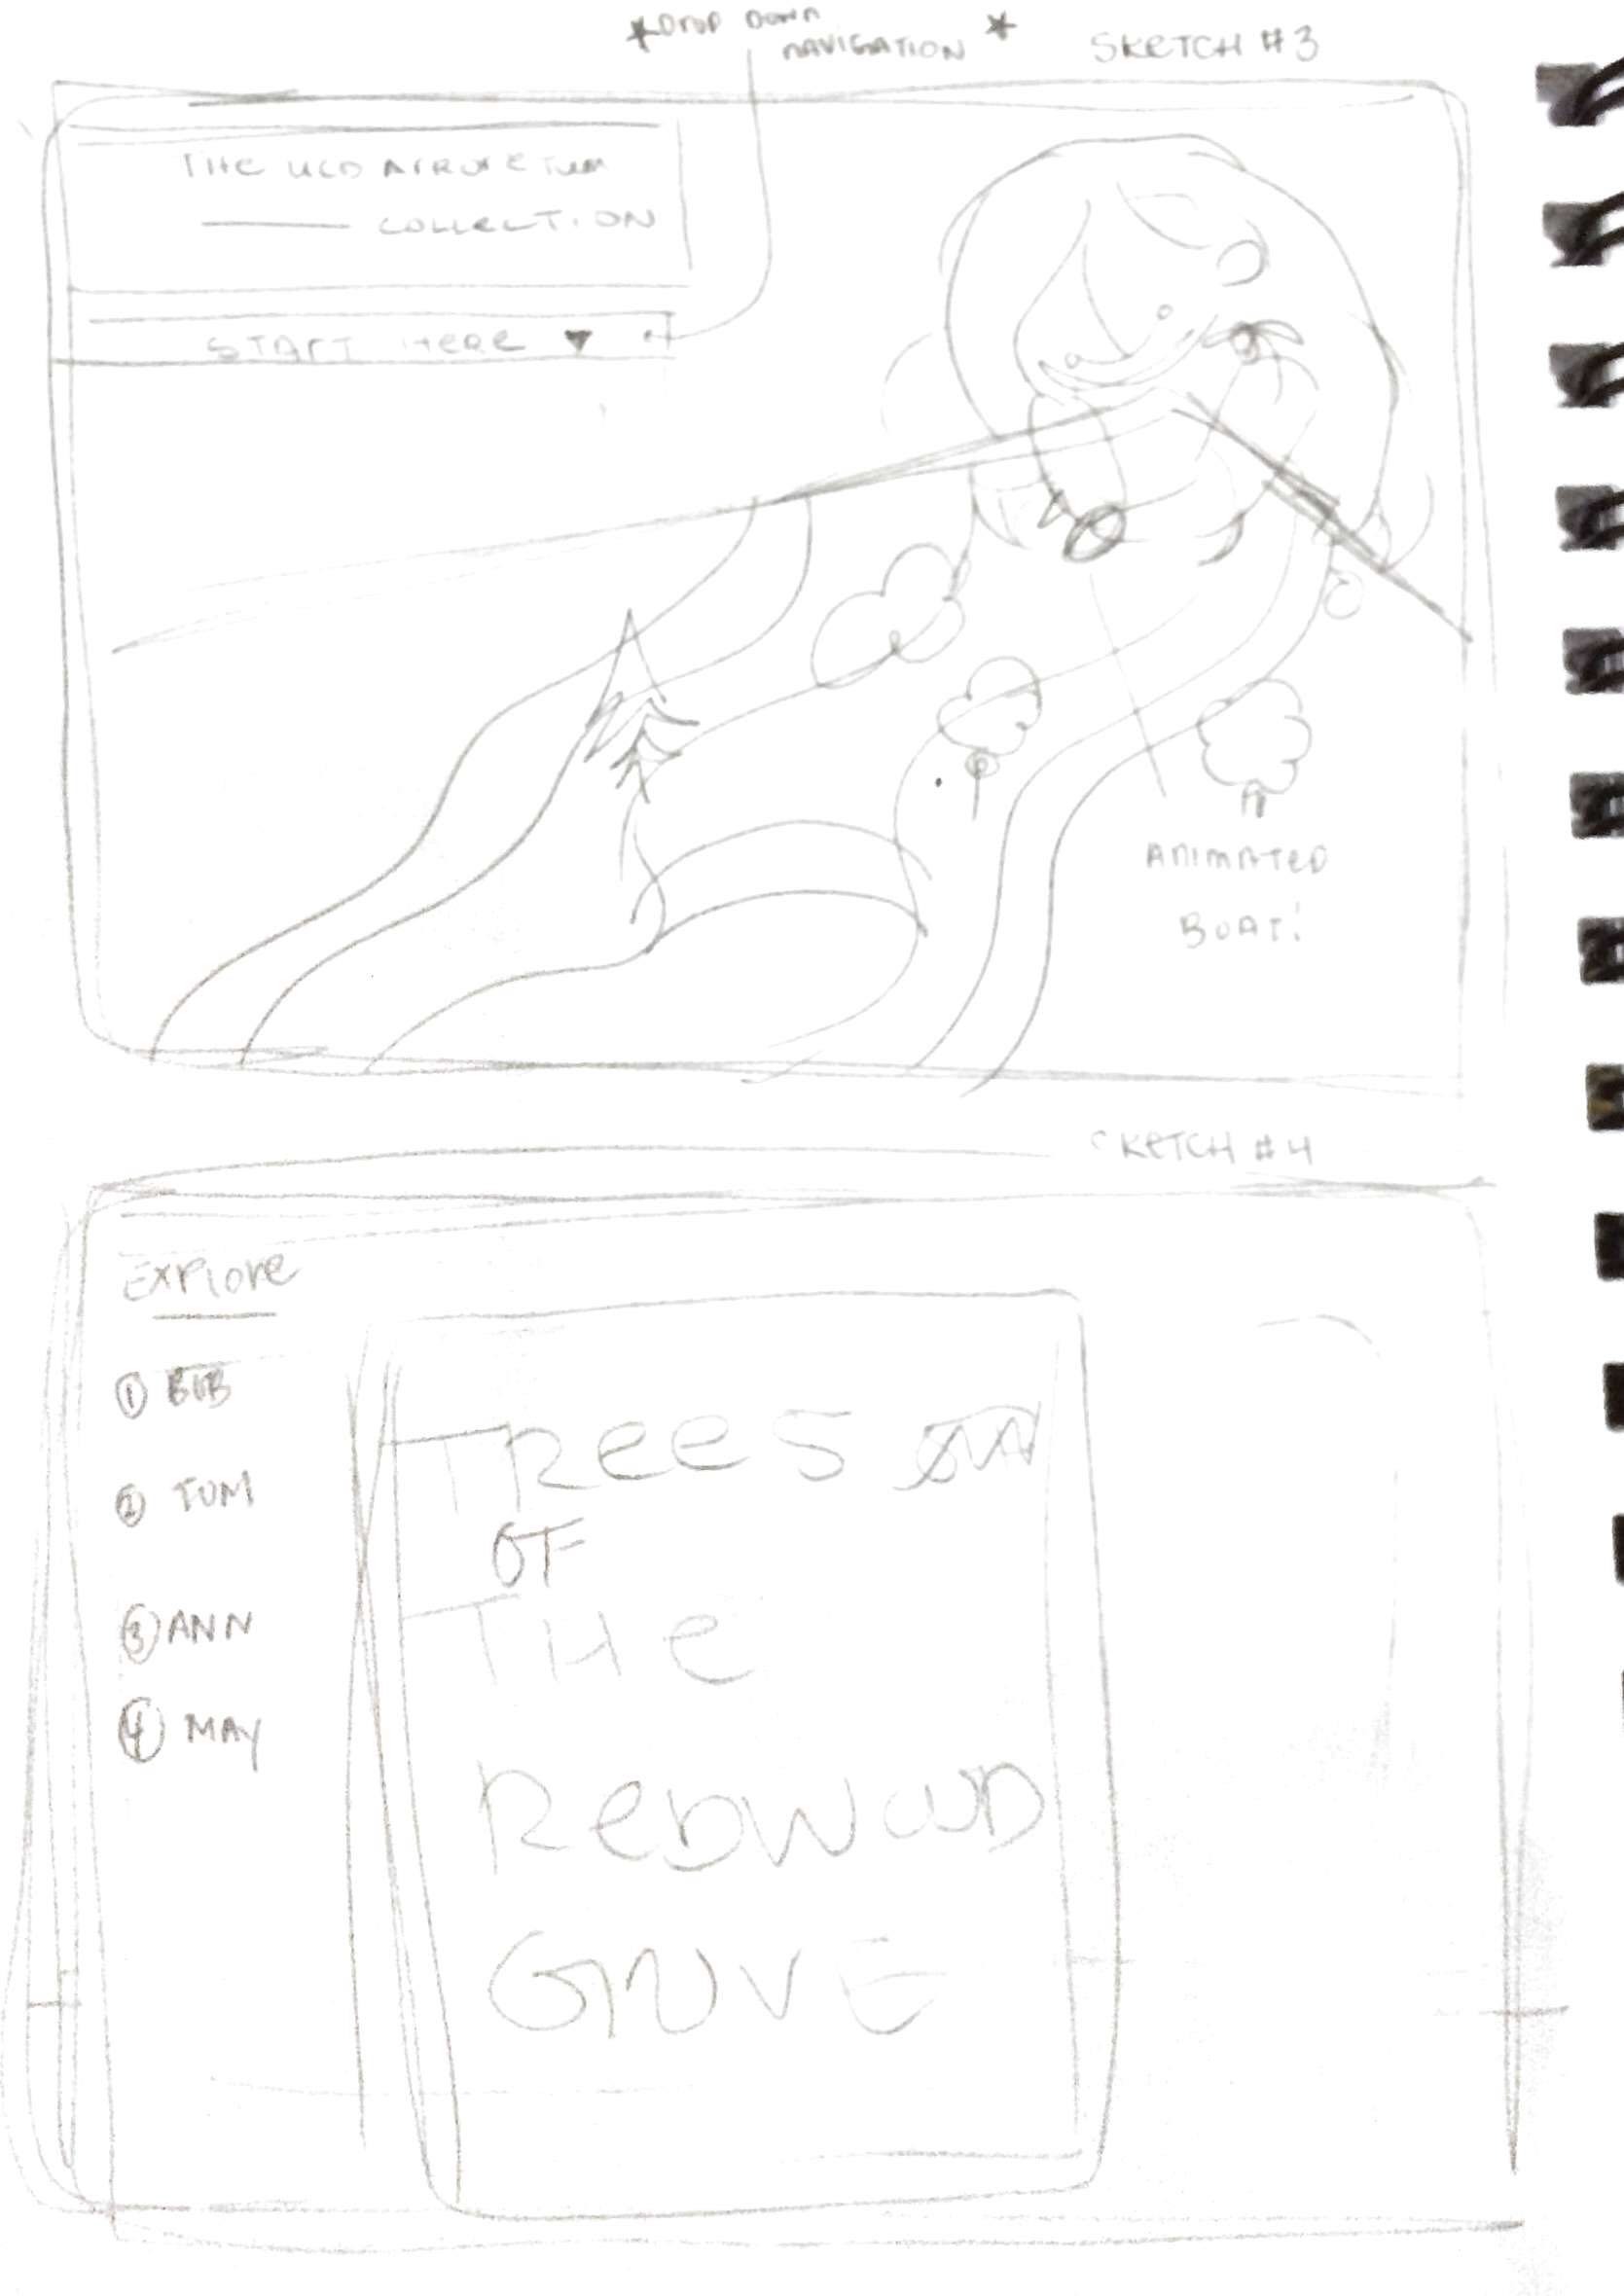 *DROP DOWN
NAVIGATION *
SKETCH #3
THE UCD ARBORETUM
COLLECTION
START HERE ▼
ANIMATED
BOAT!
SKETCH #4
EXPLORE
① BOB
② TOM
③ ANN
④ MAY
TREES
OF
THE
REDWOOD
GROVE